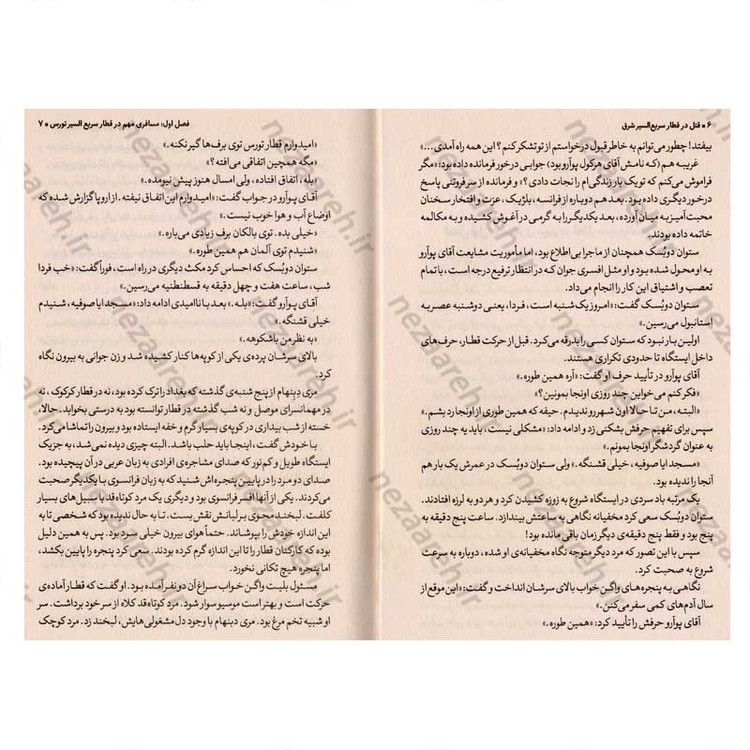 ۶ • قتل در قطار سریع‌السیر شرق
بیفتد! چطور می‌توانم به خاطر قبول درخواستم از تو تشکر کنم؟ این همه راه آمدی...»
غریبه هم (که نامش آقای هرکول پوآرو بود) جوابی درخور فرمانده داده بود: «مگر
فراموش می‌کنم که تو یک بار زندگی‌ام را نجات دادی؟» و فرمانده از سر فروتنی پاسخ
درخور دیگری داده بود. بعد هم دوباره از فرانسه، بلژیک، عزت و افتخار سخنان
محبت‌آمیز به میان آورده، بعد یکدیگر را به گرمی در آغوش کشیده و به مکالمه
خاتمه داده بودند.
ستوان دوبُسک همچنان از ماجرا بی‌اطلاع بود، اما مأموریت مشایعت آقای پوآرو
به او محول شده بود و او مثل افسری جوان که در انتظار ترفیع درجه است، با تمام
تعصب و اشتیاق این کار را انجام می‌داد.
ستوان دوبُسک گفت: «امروز یک‌شنبه است، فردا، یعنی دوشنبه عصر به
استانبول می‌رسین.»
اولین بار نبود که ستوان کسی را بدرقه می‌کرد. قبل از حرکت قطار، حرف‌های
داخل ایستگاه تا حدودی تکراری هستند.
آقای پوآرو در تأیید حرف او گفت: «آره همین طوره.»
«فکر کنم می‌خواین چند روزی اونجا بمونین؟»
«البته، من تا حالا اون شهر رو ندیدم. حیفه که همین طوری از اونجا رد بشم.»
سپس برای تفهیم حرفش بشکنی زد و ادامه داد: «مشکلی نیست، باید یه چند روزی
به عنوان گردشگر اونجا بمونم.»
«مسجد ایاصوفیه، خیلی قشنگه.» ولی ستوان دوبُسک در عمرش یک بار هم
آنجا را ندیده بود.
یک مرتبه باد سردی در ایستگاه شروع به زوزه کشیدن کرد و هر دو به لرزه افتادند.
ستوان دوبُسک سعی کرد مخفیانه نگاهی به ساعتش بیندازد. ساعت پنج دقیقه به
پنج بود و فقط پنج دقیقه‌ی دیگر زمان باقی مانده بود!
سپس با این تصور که مرد دیگر متوجه نگاه مخفیانه‌ی او شده، دوباره به سرعت
شروع به صحبت کرد.
نگاهی به پنجره‌های واگن خواب بالای سرشان انداخت و گفت: «این موقع از
سال آدم‌های کمی سفر می‌کنن.»
آقای پوآرو حرفش را تأیید کرد: «همین طوره.»
فصل اول: مسافری مهم در قطار سریع السیر تورس • ۷
«امیدوارم قطار تورس توی برف‌ها گیر نکنه.»
«مگه همچین اتفاقی می‌افته؟»
«بله، اتفاق افتاده، ولی امسال هنوز پیش نیومده.»
آقای پوآرو در جواب گفت: «امیدوارم این اتفاق نیفته. از اروپا گزارش شده که
اوضاع آب و هوا خوب نیست.»
«خیلی بده. توی بالکان برف زیادی می‌باره.»
«شنیدم توی آلمان هم همین طوره.»
ستوان دوبُسک که احساس کرد مکث دیگری در راه است، فوراً گفت: «خب فردا
شب، ساعت هفت و چهل دقیقه به قسطنطنیه می‌رسین.»
آقای پوآرو گفت: «بله.» بعد با ناامیدی ادامه داد: «مسجد ایاصوفیه، شنیدم
خیلی قشنگه.»
«به نظر من باشکوهه.»
بالای سرشان پرده‌ی یکی از کوپه‌ها کنار کشیده شد و زن جوانی به بیرون نگاه
کرد.
مری دبنهام از پنج شنبه‌ی گذشته که بغداد را ترک کرده بود، نه در قطار کرکوک، نه
در مهمانسرای موصل و نه شب گذشته در قطار توانسته بود به درستی بخوابد. حالا،
خسته از شب بیداری در کوپه‌ی بسیار گرم و خفه ایستاده بود و بیرون را تماشا می‌کرد.
با خودش گفت، اینجا باید حلب باشد. البته چیزی دیده نمی‌شد، به جز یک
ایستگاه طویل و کم‌نور که صدای مشاجره‌ی افرادی به زبان عربی در آن پیچیده بود.
صدای دو مرد را در پایین پنجره‌اش شنید که به زبان فرانسوی با یکدیگر صحبت
می‌کردند. یکی از آنها افسر فرانسوی بود و دیگری یک مرد کوتاه‌قد با سبیل‌های بسیار
کلفت. لبخند محوی بر لبانش نقش بست. تا به حال ندیده بود که شخصی تا به
این اندازه خودش را بپوشاند. حتماً هوای بیرون خیلی سرد بود. پس به همین دلیل
بوده که کارکنان قطار را تا این اندازه گرم کرده بودند. سعی کرد پنجره را پایین بکشد،
اما پنجره هیچ تکانی نخورد.
مسئول بلیت واگن خواب سراغ آن دو نفر آمده بود. او گفت که قطار آماده‌ی
حرکت است و بهتر است موسیو سوار شود. مرد کوتاه‌قد کلاه از سر خود برداشت. سر
او شبیه تخم مرغ بود. مری دبنهام با وجود دل مشغولی‌هایش، لبخند زد. مرد کوچک
nezaareh.ir